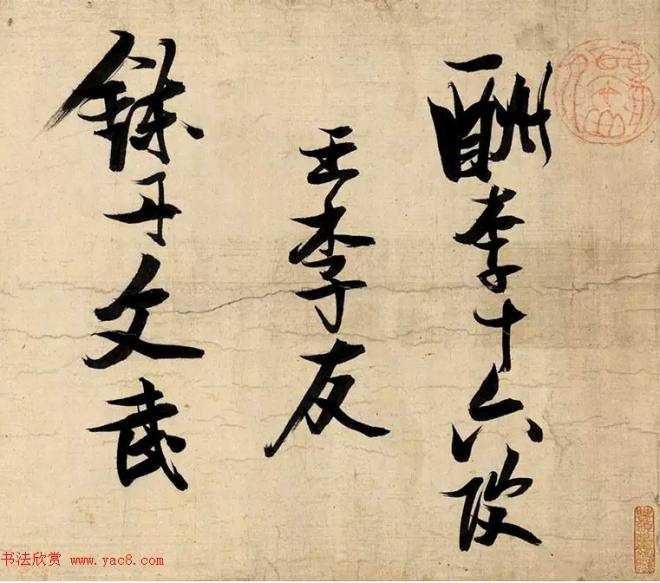 酬李十六岐
王季友
鍊丹文武
书法欣赏 www.yac8.com